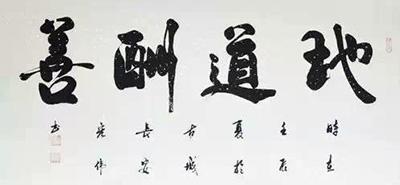 地道酬善
時在
壬辰
夏於
古城
長安
偉
书